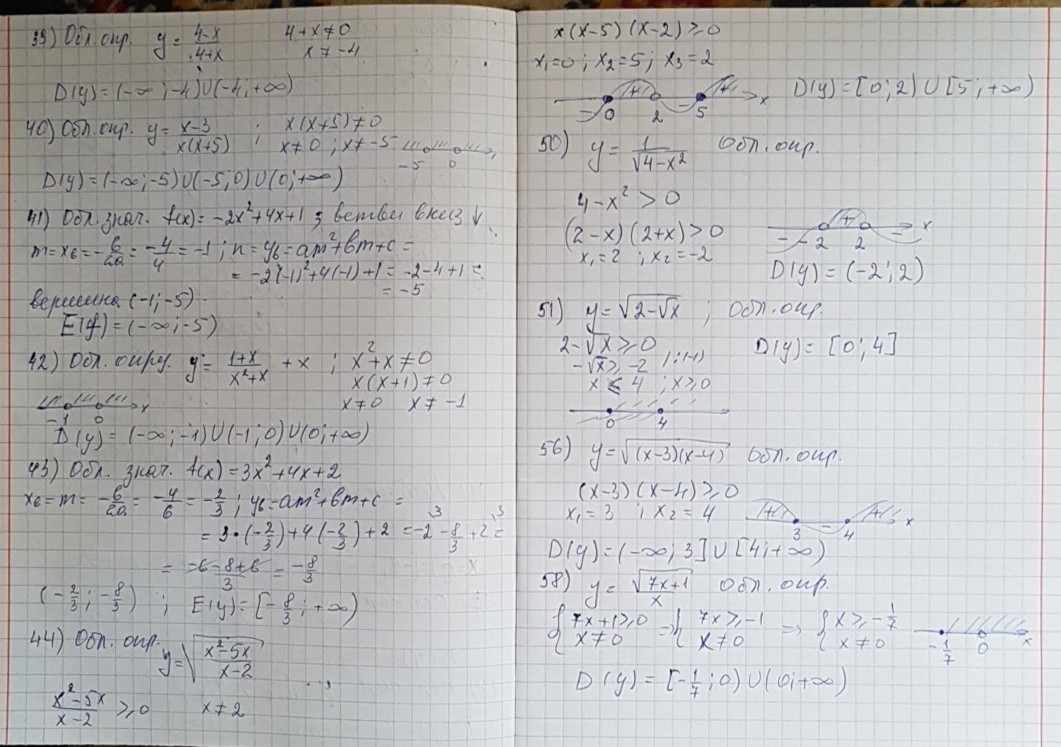 39) Обл. опр. y = (4-x)/(4+x)   4+x≠0
x≠-4
D(y)=(-∞;-4)∪(-4;+∞)
40) Обл. опр. y = (x-3)/(x(x+5)) ; x(x+5)≠0
x≠0 ; x≠-5   -5   0
D(y)=(-∞;-5)∪(-5;0)∪(0;+∞)
41) Обл. знач. f(x)=-2x²+4x+1 ; ветви вниз ↓
m=x₆=-b/2a=-4/4=-1 ; n=y₆=am²+bm+c=
=-2(-1)²+4(-1)+1=-2-4+1=
=-5
вершина (-1;-5)
E(f)=(-∞;-5)
42) Обл. y = (1+x)/(x²+x) + x ; x²+x≠0
x(x+1)≠0
-1   0   x   x≠0   x≠-1
D(y)=(-∞;-1)∪(-1;0)∪(0;+∞)
43) Обл. знач. f(x)=3x²+4x+2
x₆=m=-b/2a=-4/6=-2/3 ; y₆=am²+bm+c=
=3·(-2/3)+4(-2/3)+2=-2-8/3+2=
=(-6-8+6)/3=-8/3
(-2/3;-8/3) ; E(y)=[-8/3;+∞)
44) Обл. опр.
y=√((x²-5x)/(x-2))
(x²-5x)/(x-2)≥0   x≠2
x(x-5)(x-2)≥0
x₁=0; x₂=5; x₃=2
- 0 + 2 - 5 + x   D(y)=[0;2)∪[5;+∞)
50) y=1/√(4-x²)   Обл. опр.
4-x²>0
(2-x)(2+x)>0   - -2 + 2 - x
x₁=2 ; x₂=-2
D(y)=(-2;2)
51) y=√(2-√x) ; Обл. опр.
2-√x≥0   D(y)=[0;4]
-√x≥-2 |:(-1)
x≤4 ; x≥0
0   4
56) y=√((x-3)(x-4))   Обл. опр.
(x-3)(x-4)≥0
x₁=3 ; x₂=4   + 3 - 4 + x
D(y)=(-∞;3]∪[4;+∞)
58) y=√(7x+1)/x   Обл. опр.
{7x+1≥0 x≠0 => {7x≥-1 x≠0 => {x≥-1/7 x≠0   -1/7   0   x
D(y)=[-1/7;0)∪(0;+∞)